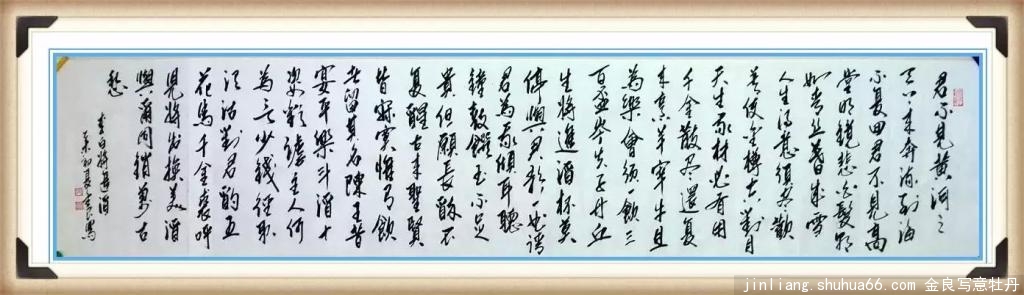 君不見黄河之
天上来奔流到海
不复回君不見高
堂明鏡悲白髮朝
如青丝暮成雪
人生得意須尽歡
莫使金樽空對月
天生我材必有用
千金散尽還复
来烹羊宰牛且
為樂會須一飲三
百盃岑夫子丹丘
生將進酒杯莫
停與君歌一曲請
君為我傾耳聽
鐘鼓饌玉不足
貴但願長醉不
复醒古来聖賢
皆寂寞惟有飲
者留其名陳王昔
宴平樂斗酒十
恣歡謔主人何
為言少錢径取
須沽對君酌五
花馬千金裘呼
兒將出換美酒
與爾同銷萬古
愁
李白將進酒
初夏金良寫
jinliang.shuhua66.com 金良写意牡丹